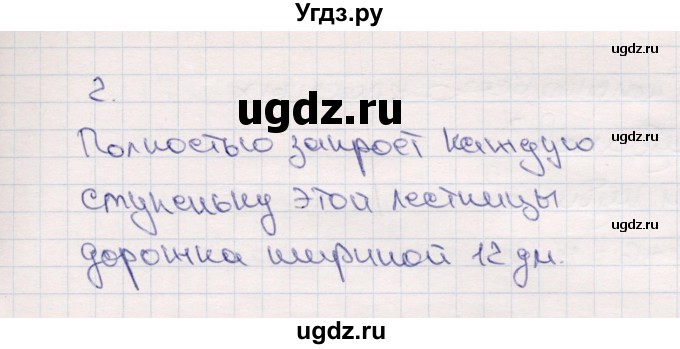 Угдз.ру
ugdz.ru
2.
ugdz.ru
Полностью закроет каждую
ступеньку этой лестницы
дорожка шириной 12 дм.
ugdz.ru
ugdz.ru